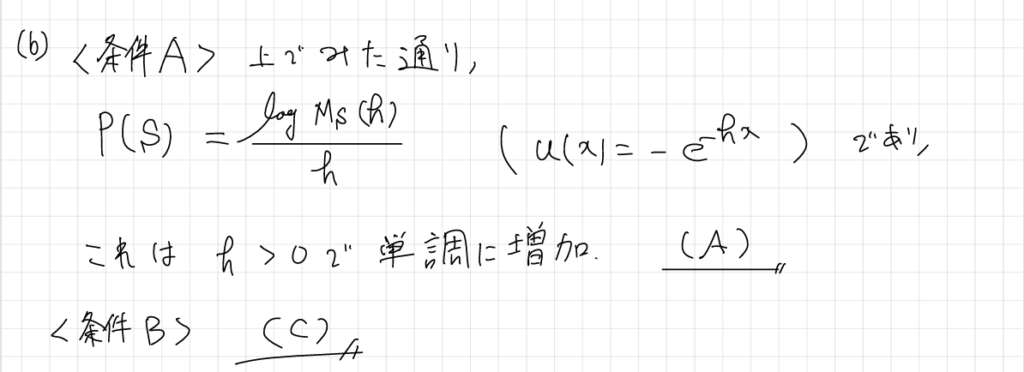 (b) <条件A> 上でみた通り,
P(S) = log Ms(h) / h ( u(x) = - e^-hx ) であり,
これは h > 0 で 単調に増加. (A)
<条件B> (C)